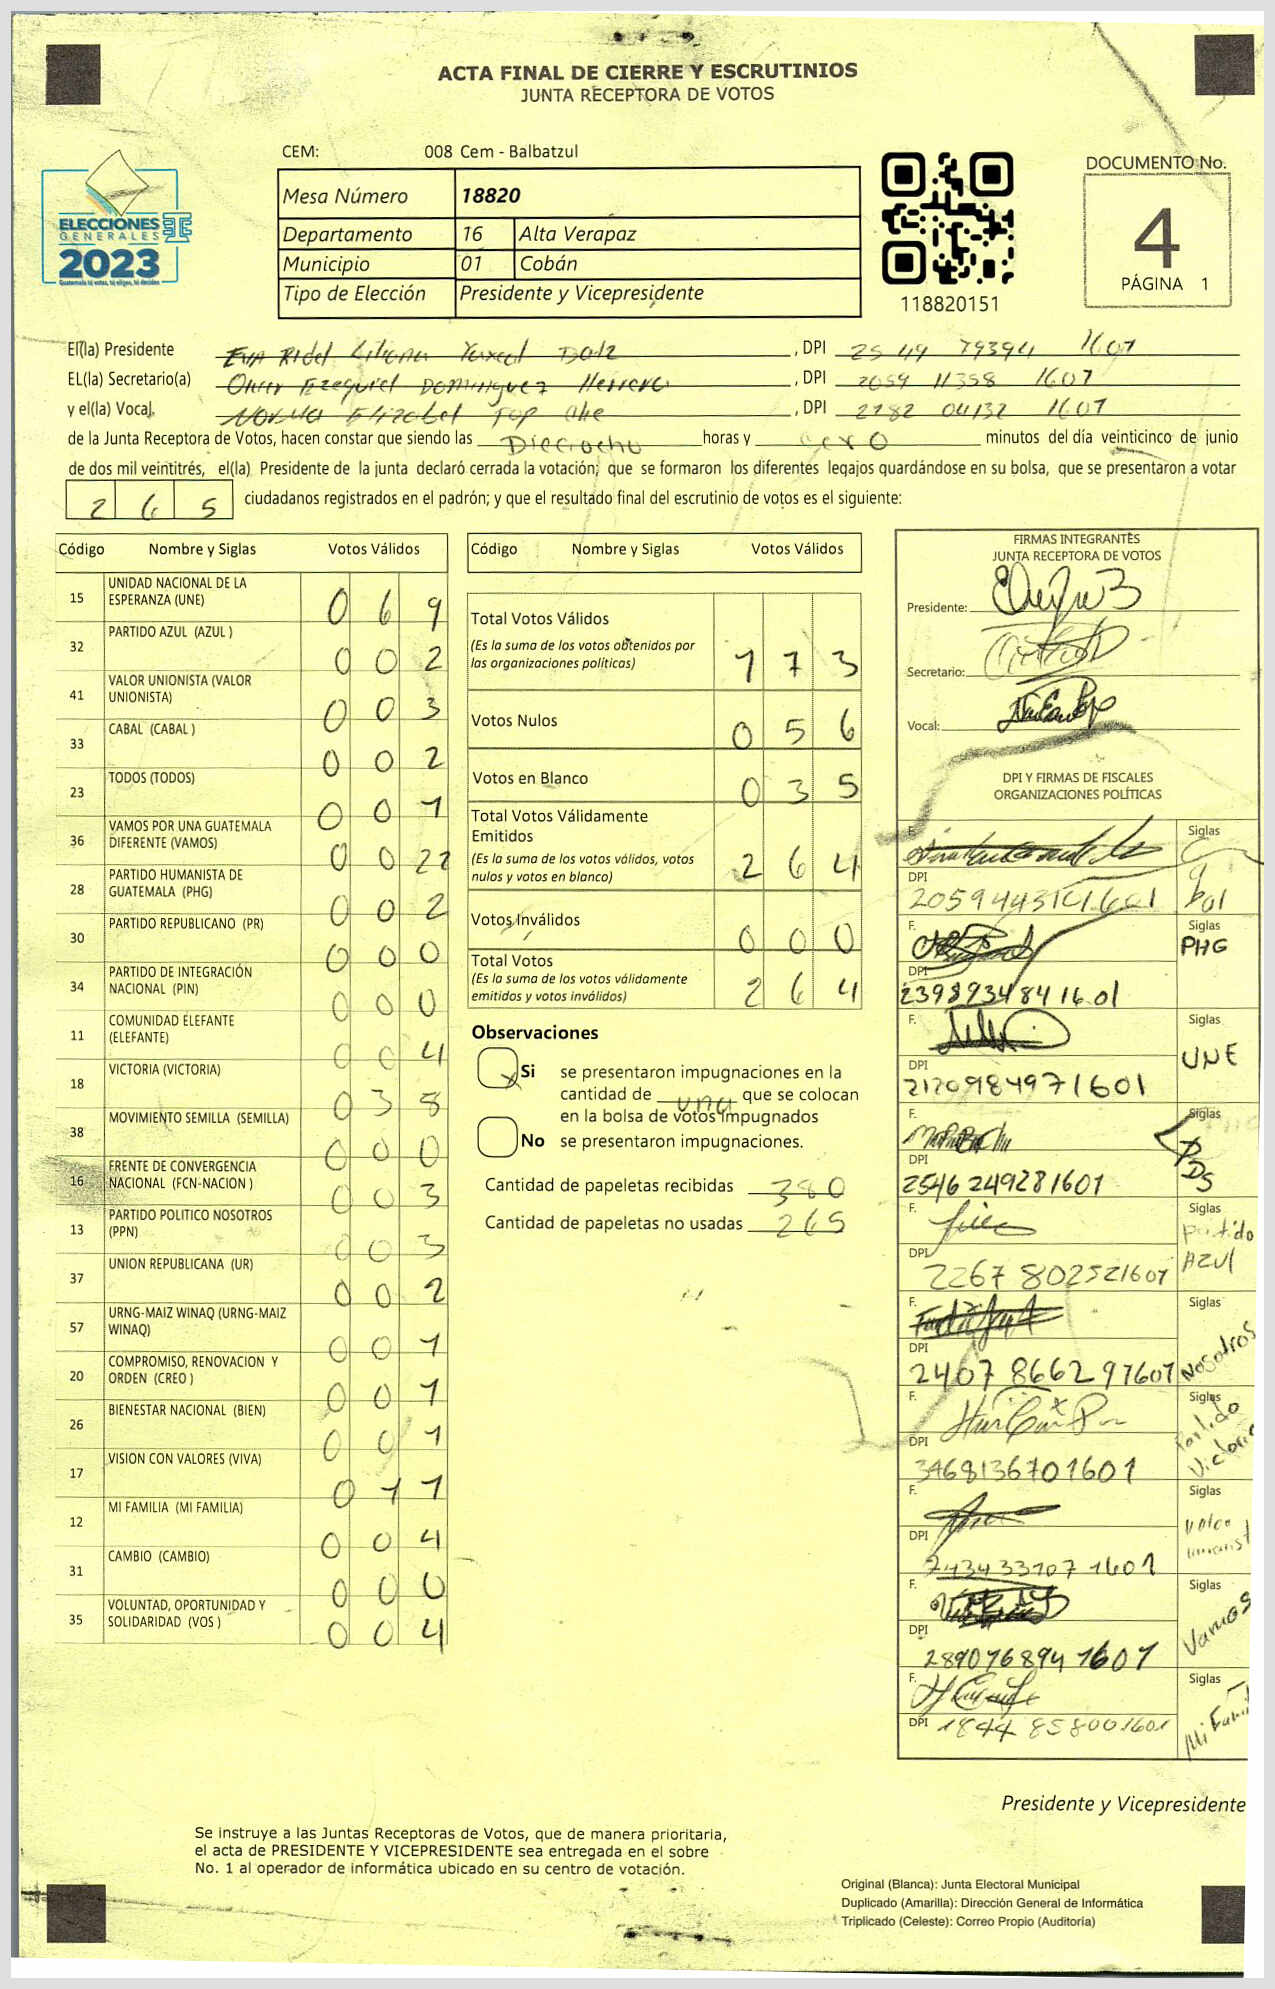 ACTA FINAL DE CIERRE Y ESCRUTINIOS
JUNTA RECEPTORA DE VOTOS
CEM: 008 Cem - Balbatzul
Mesa Número 18820
Departamento 16 Alta Verapaz
Municipio 01 Cobán
Tipo de Elección Presidente y Vicepresidente
ELECCIONES
GENERALES
2023
118820151
DOCUMENTO No.
4
PÁGINA 1
El(la) Presidente Liliana , DPI 2549 79394 1607
EL(la) Secretario(a) Ezequiel Dominguez Herrera , DPI 2059 11358 1607
y el(la) Vocal, , DPI 2782 04132 1607
de la Junta Receptora de Votos, hacen constar que siendo las Dieciocho horas y cero minutos del día veinticinco de junio
de dos mil veintitrés, el(la) Presidente de la junta declaró cerrada la votación; que se formaron los diferentes legajos quardándose en su bolsa, que se presentaron a votar
265 ciudadanos registrados en el padrón; y que el resultado final del escrutinio de votos es el siguiente:
Código Nombre y Siglas Votos Válidos
15 UNIDAD NACIONAL DE LA
ESPERANZA (UNE) 0 6 9
32 PARTIDO AZUL (AZUL ) 0 0 2
41 VALOR UNIONISTA (VALOR
UNIONISTA) 0 0 3
33 CABAL (CABAL ) 0 0 2
23 TODOS (TODOS) 0 0 1
36 VAMOS POR UNA GUATEMALA
DIFERENTE (VAMOS) 0 0 22
28 PARTIDO HUMANISTA DE
GUATEMALA (PHG) 0 0 2
30 PARTIDO REPUBLICANO (PR) 0 0 0
34 PARTIDO DE INTEGRACIÓN
NACIONAL (PIN) 0 0 0
11 COMUNIDAD ELEFANTE
(ELEFANTE) 0 0 4
18 VICTORIA (VICTORIA) 0 3 8
38 MOVIMIENTO SEMILLA (SEMILLA) 0 0 0
16 FRENTE DE CONVERGENCIA
NACIONAL (FCN-NACION ) 0 0 3
13 PARTIDO POLITICO NOSOTROS
(PPN) 0 0 3
37 UNION REPUBLICANA (UR) 0 0 2
57 URNG-MAIZ WINAQ (URNG-MAIZ
WINAQ) 0 0 1
20 COMPROMISO, RENOVACION Y
ORDEN (CREO ) 0 0 1
26 BIENESTAR NACIONAL (BIEN) 0 0 1
17 VISION CON VALORES (VIVA) 0 1 1
12 MI FAMILIA (MI FAMILIA) 0 0 4
31 CAMBIO (CAMBIO) 0 0 0
35 VOLUNTAD, OPORTUNIDAD Y
SOLIDARIDAD (VOS ) 0 0 4
Código Nombre y Siglas Votos Válidos
Total Votos Válidos
(Es la suma de los votos obtenidos por
las organizaciones políticas) 1 7 3
Votos Nulos 0 5 6
Votos en Blanco 0 3 5
Total Votos Válidamente
Emitidos
(Es la suma de los votos válidos, votos
nulos y votos en blanco) 2 6 4
Votos Inválidos 0 0 0
Total Votos
(Es la suma de los votos válidamente
emitidos y votos inválidos) 2 6 4
Observaciones
x Si se presentaron impugnaciones en la
cantidad de una que se colocan
en la bolsa de votos impugnados
No se presentaron impugnaciones.
Cantidad de papeletas recibidas 380
Cantidad de papeletas no usadas 265
FIRMAS INTEGRANTES
JUNTA RECEPTORA DE VOTOS
Presidente:
Secretario:
Vocal:
DPI Y FIRMAS DE FISCALES
ORGANIZACIONES POLÍTICAS
F. Siglas
DPI
2059443101601
F. Siglas
PHG
DPI
2398934841601
F. Siglas
UNE
DPI
2120984971601
F. Siglas
DPI
2546249281601
F. Siglas
Partido
Azul
DPI
2267 802521607
F. Siglas
Nosotros
DPI
2407 866297607
F. Siglas
Partido
Victoria
DPI
3468136701601
F. Siglas
DPI
2434331071601
F. Siglas
Vamos
DPI
2890768941607
F. Siglas
DPI 1844 858001601
Presidente y Vicepresidente
Se instruye a las Juntas Receptoras de Votos, que de manera prioritaria,
el acta de PRESIDENTE Y VICEPRESIDENTE sea entregada en el sobre
No. 1 al operador de informática ubicado en su centro de votación.
Original (Blanca): Junta Electoral Municipal
Duplicado (Amarilla): Dirección General de Informática
Triplicado (Celeste): Correo Propio (Auditoría)